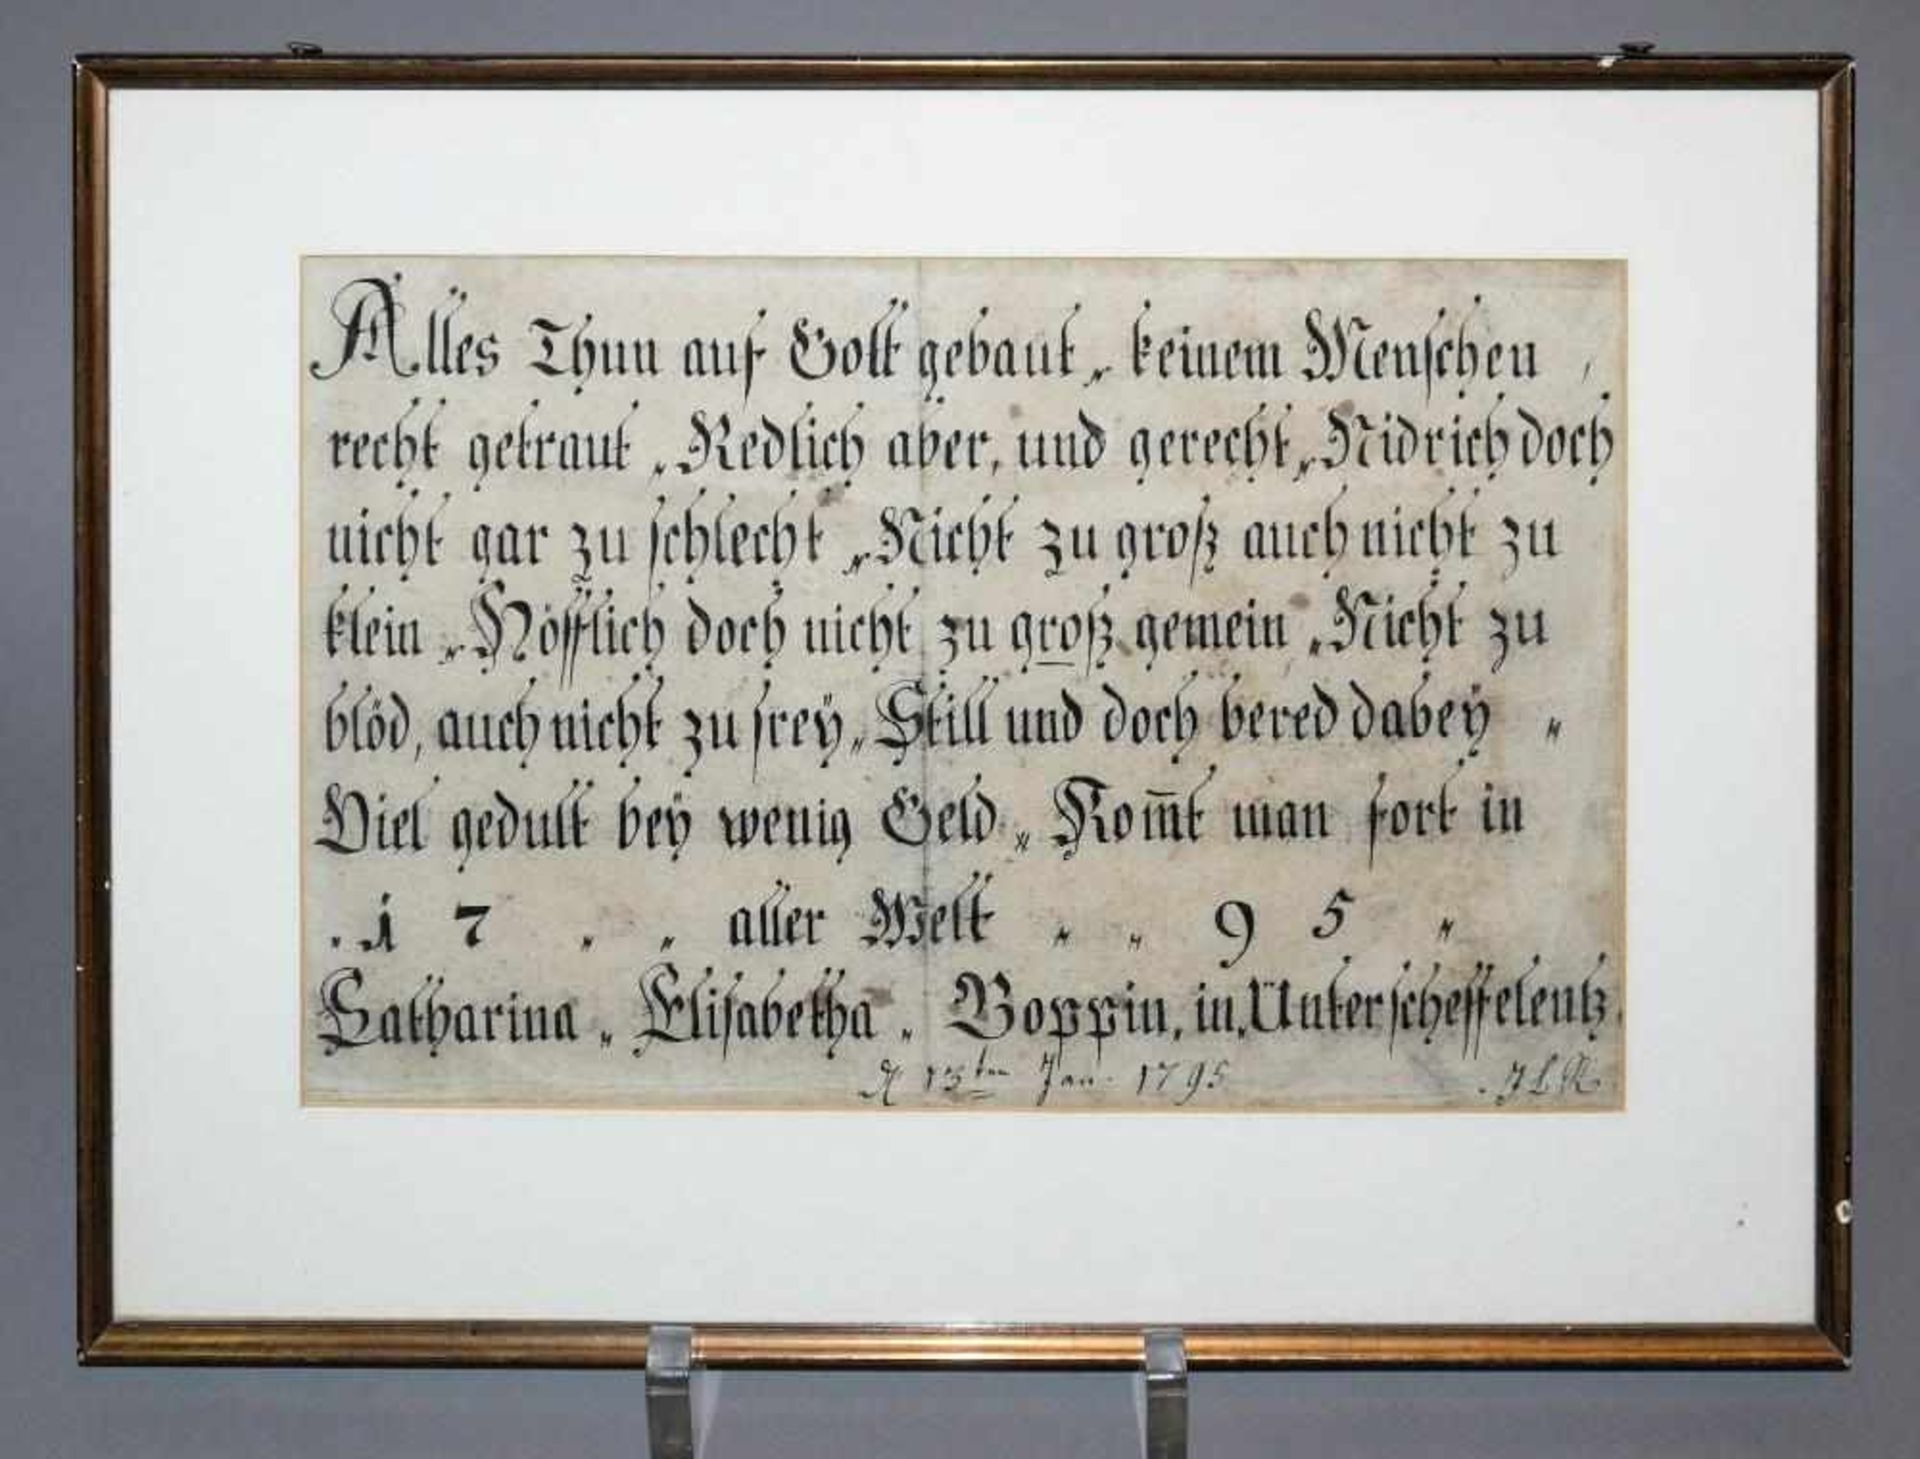 Alles Thun auf Gott gebaut „ keinem Menschen ,
recht getraut „ Redlich aber, und gerecht „ Nidrich doch
nicht gar zu schlecht „ Nicht zu groß auch nicht zu
klein „ Höfflich doch nicht zu groß gemein „ Nicht zu
blöd, auch nicht zu frey „ Still und doch bered dabey „
Viel gedult bey wenig Geld „ Kom̄t man fort in
„ 1 7 „ „ aller Welt „ „ 9 5 „
Catharina „ Elisabetha „ Boppin, in „ Unterscheffelentz.
13ten Jan. 1795 . J L R.